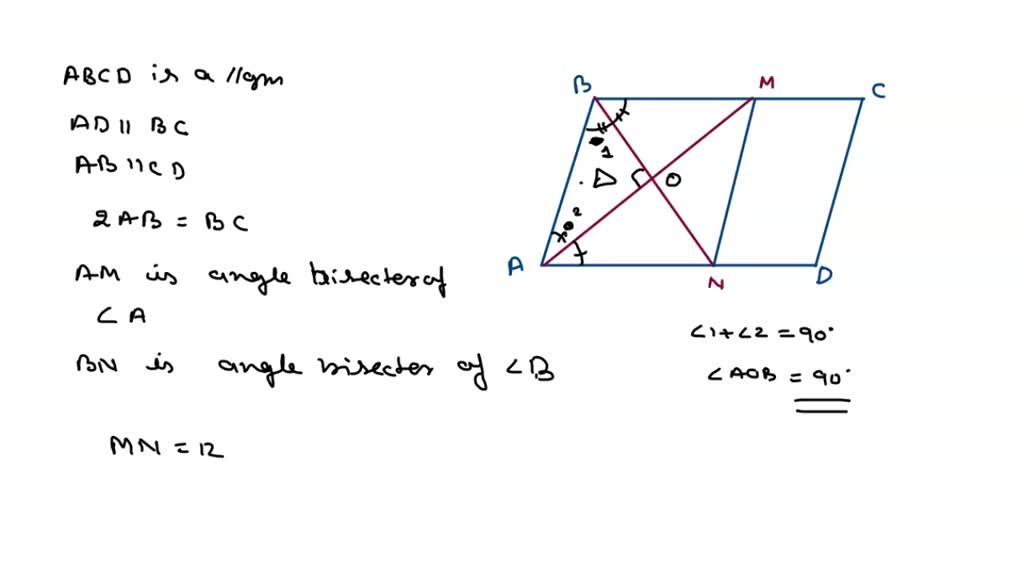 ABCD is a //gm
AD || BC
AB || CD
2AB = BC
AM is angle bisector of
∠A
BN is angle bisector of ∠B
MN = 12
B M C
1
O
2
A N D
∠1+∠2 = 90°
∠AOB = 90°